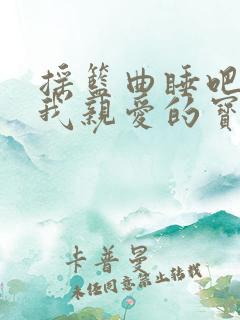 摇籃曲睡吧
我親愛的寶
卡普曼
未经同意禁止转载